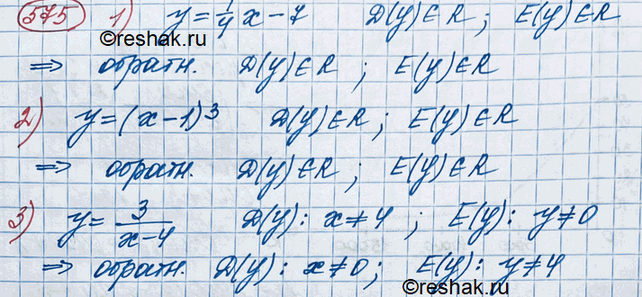 575 1) y = 1/4 x - 7 D(y) ∈ R ; E(y) ∈ R
©reshak.ru
⇒ обратн. D(y) ∈ R ; E(y) ∈ R
2) y = (x - 1)³ D(y) ∈ R ; E(y) ∈ R
⇒ обратн. D(y) ∈ R ; E(y) ∈ R
3) y = 3/(x - 4) D(y) : x ≠ 4 ; E(y) : y ≠ 0
⇒ обратн. D(y) : x ≠ 0 ; E(y) : y ≠ 4
©reshak.ru